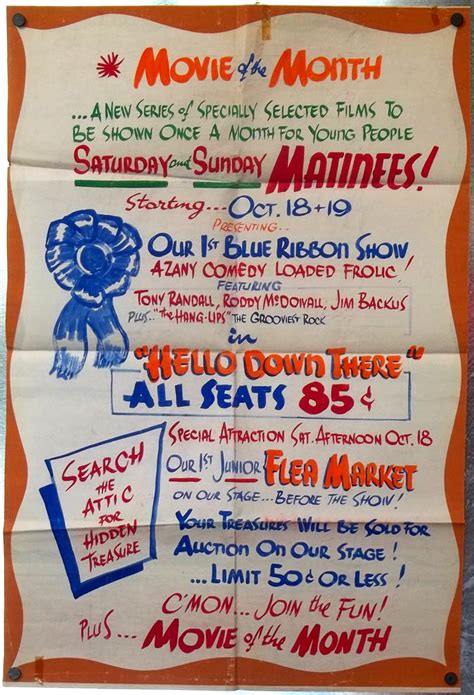 * MOVIE of the MONTH
...A NEW SERIES of SPECIALLY SELECTED FILMS TO
BE SHOWN ONCE A MONTH FOR YOUNG PEOPLE
SATURDAY and SUNDAY MATINEES!
STARTING... OCT. 18+19
PRESENTING...
OUR 1ST BLUE RIBBON SHOW
A ZANY COMEDY LOADED FROLIC!
FEATURING
TONY RANDALL, RODDY McDOWALL, JIM BACKUS
PLUS.."THE HANG-UPS" THE GROOVIEST ROCK
in
"HELLO DOWN THERE"
ALL SEATS 85¢
SPECIAL ATTRACTION SAT. AFTERNOON OCT. 18
OUR 1ST JUNIOR FLEA MARKET
ON OUR STAGE...BEFORE THE SHOW!
SEARCH
THE
ATTIC
FOR
HIDDEN
TREASURE
YOUR TREASURES WILL BE SOLD FOR
AUCTION ON OUR STAGE!
...LIMIT 50¢ OR LESS!
C'MON... JOIN the FUN!
PLUS... MOVIE of the MONTH